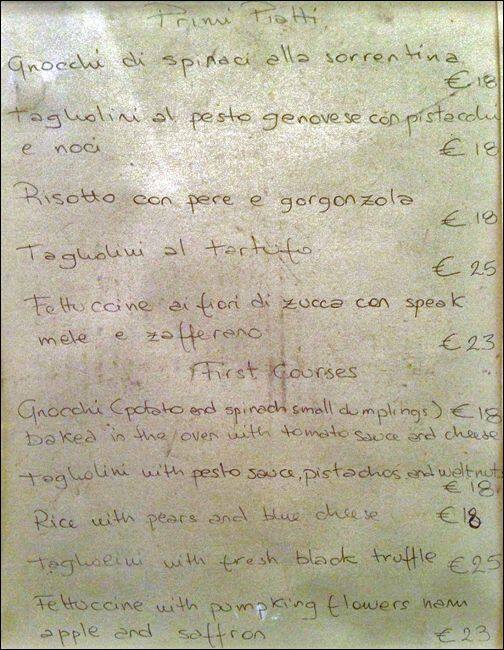 Primi Piatti
Gnocchi di spinaci alla sorrentina
€ 18
Tagliolini al pesto genovese con pistacchi
e noci € 18
Risotto con pere e gorgonzola
€ 18
Tagliolini al tartufo
€ 25
Fettuccine ai fiori di zucca con speak
mele e zafferano € 23
First Courses
Gnocchi (potato and spinach small dumplings) € 18
baked in the oven with tomato sauce and cheese
Tagliolini with pesto sauce, pistachos and waltnuts
€ 18
Rice with pears and blue cheese € 18
Tagliolini with fresh black truffle € 25
Fettuccine with pumpking flowers ham
apple and saffron € 23